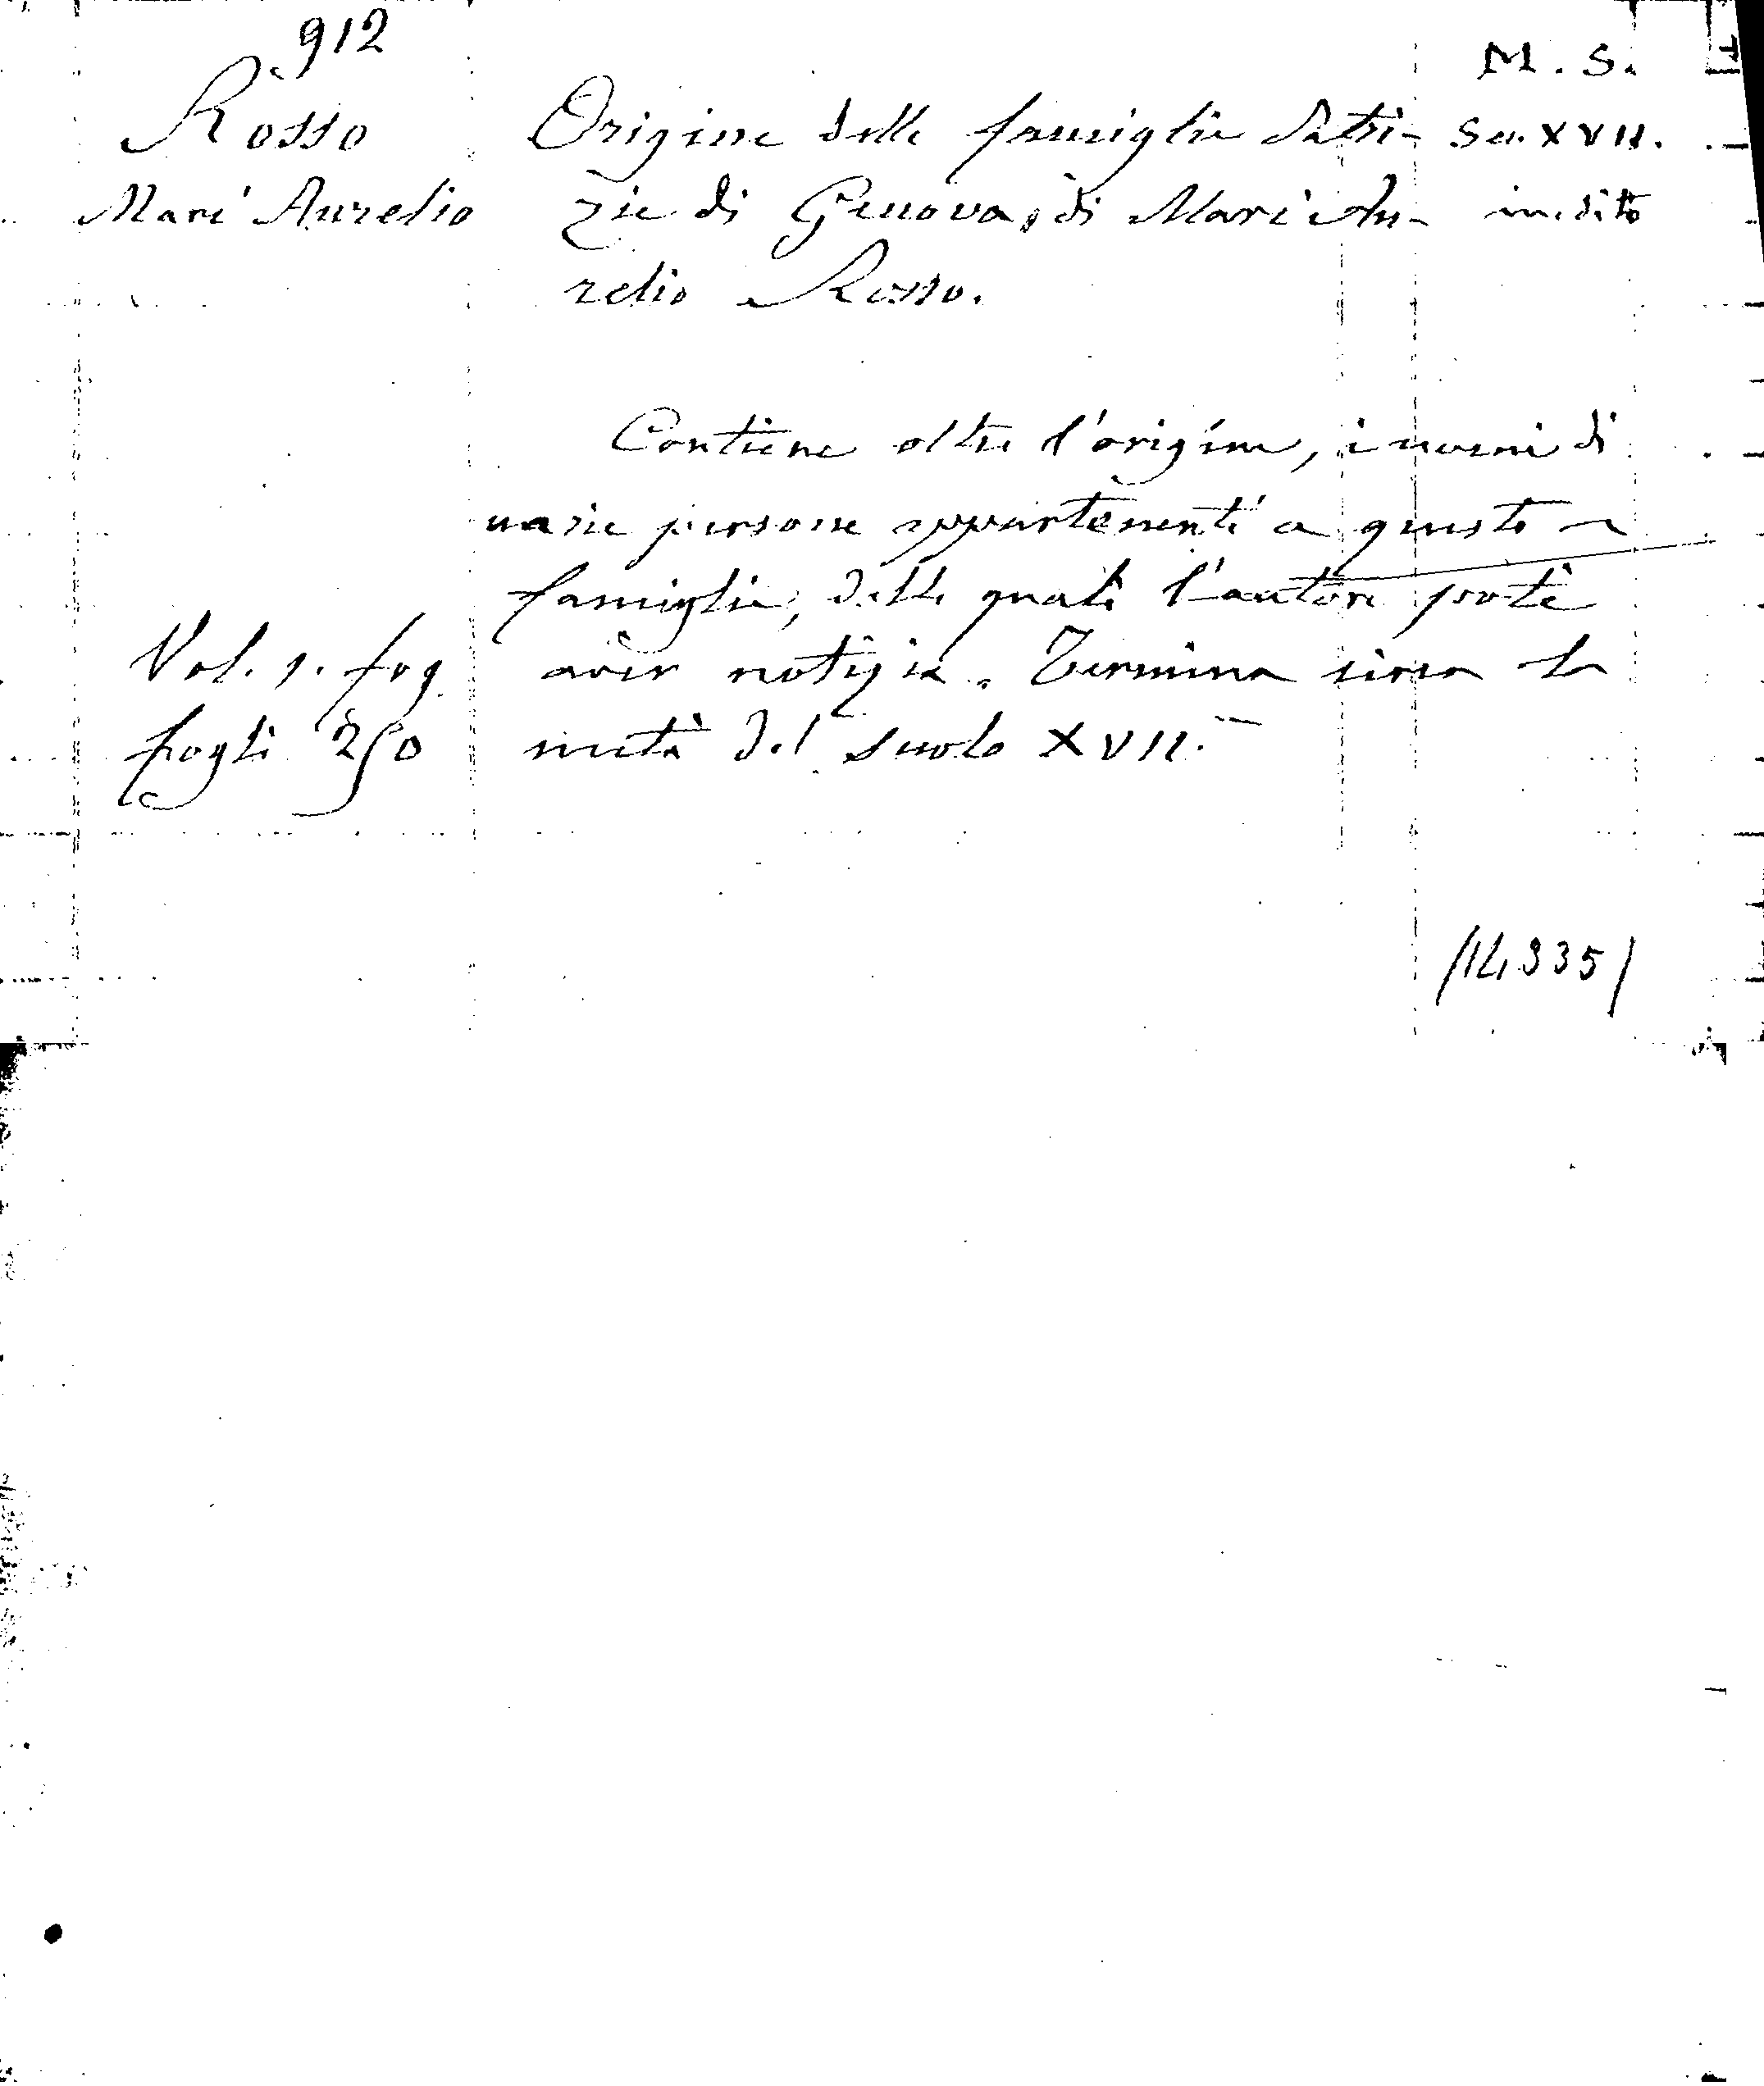 912
M. S.
Rosso
Origine delle famiglie Patri-
Sec. XVII.
Marc' Aurelio
zie di Genova, di Marc' Au-
inedito
relio Rosso.
Contiene oltre l'origine, i nomi di
varie persone appartenenti a queste
famiglie, delle quali l'autore potè
Vol. 1. fog.
aver notizie. Termina circa la
fogli 250
metà del secolo XVII.
/14335/